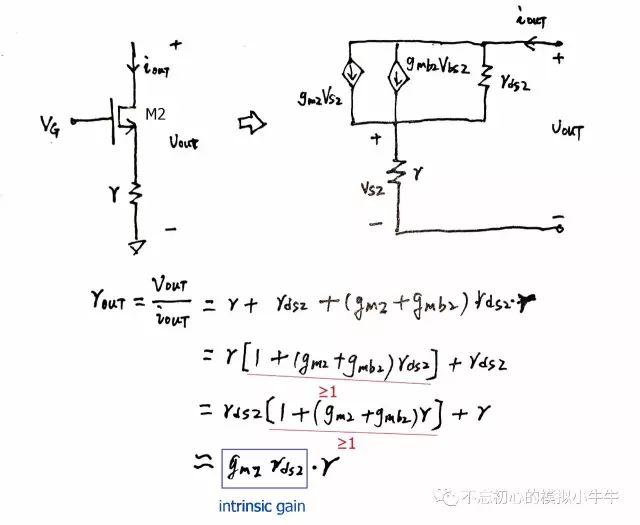 iout
+
VG
M2
Vout
r
−
iout
+
gm2Vs2
gmb2Vbs2
rds2
+
Vs2
r
Vout
−
−
rout = Vout/iout = r + rds2 + (gm2+gmb2) rds2·r
= r[1+(gm2+gmb2)rds2] + rds2
≥1
= rds2[1+(gm2+gmb2)r] + r
≥1
≈ gm2 rds2 · r
intrinsic gain
不忘初心的模拟小牛牛